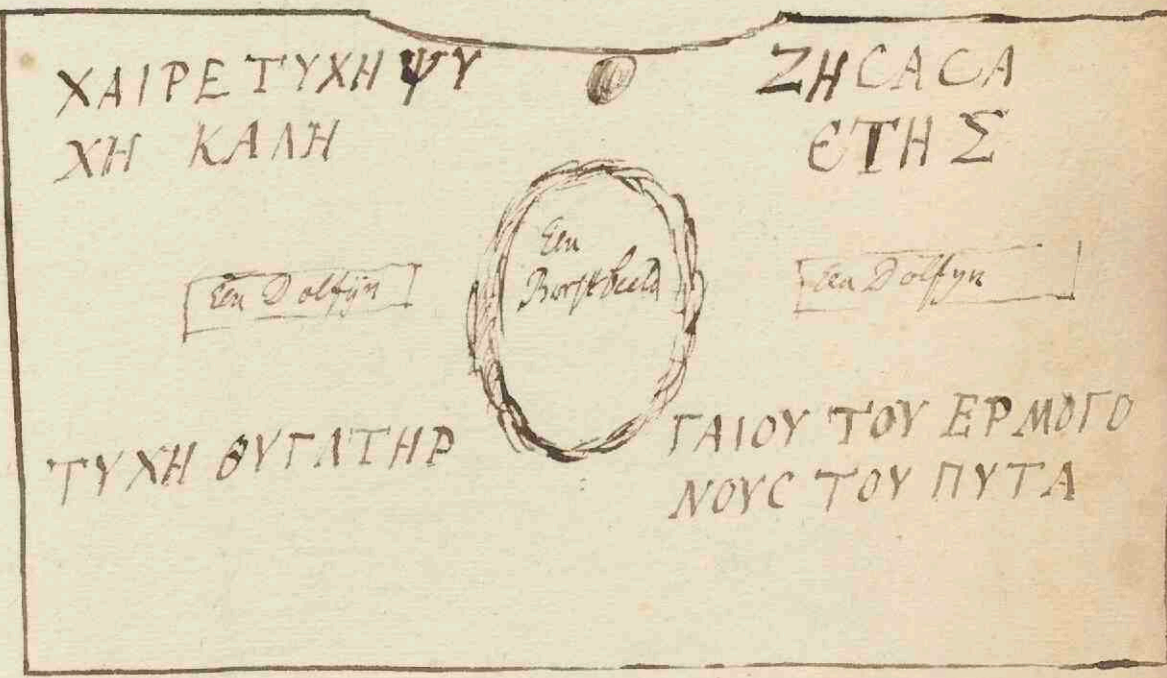 ΧΑΙΡΕ ΤΥΧΗ ΨΥ
ΧΗ ΚΑΛΗ
ΖΗCΑCΑ
ЄΤΗ Σ
Een Dolfijn
Een
Borstbeeld
Een Dolfyn
ΤΥΧΗ ΘΥΓΑΤΗΡ
ΓΑΙΟΥ ΤΟΥ ΕΡΜΟΓΟ
ΝΟΥC ΤΟΥ ΠΥΤΑ